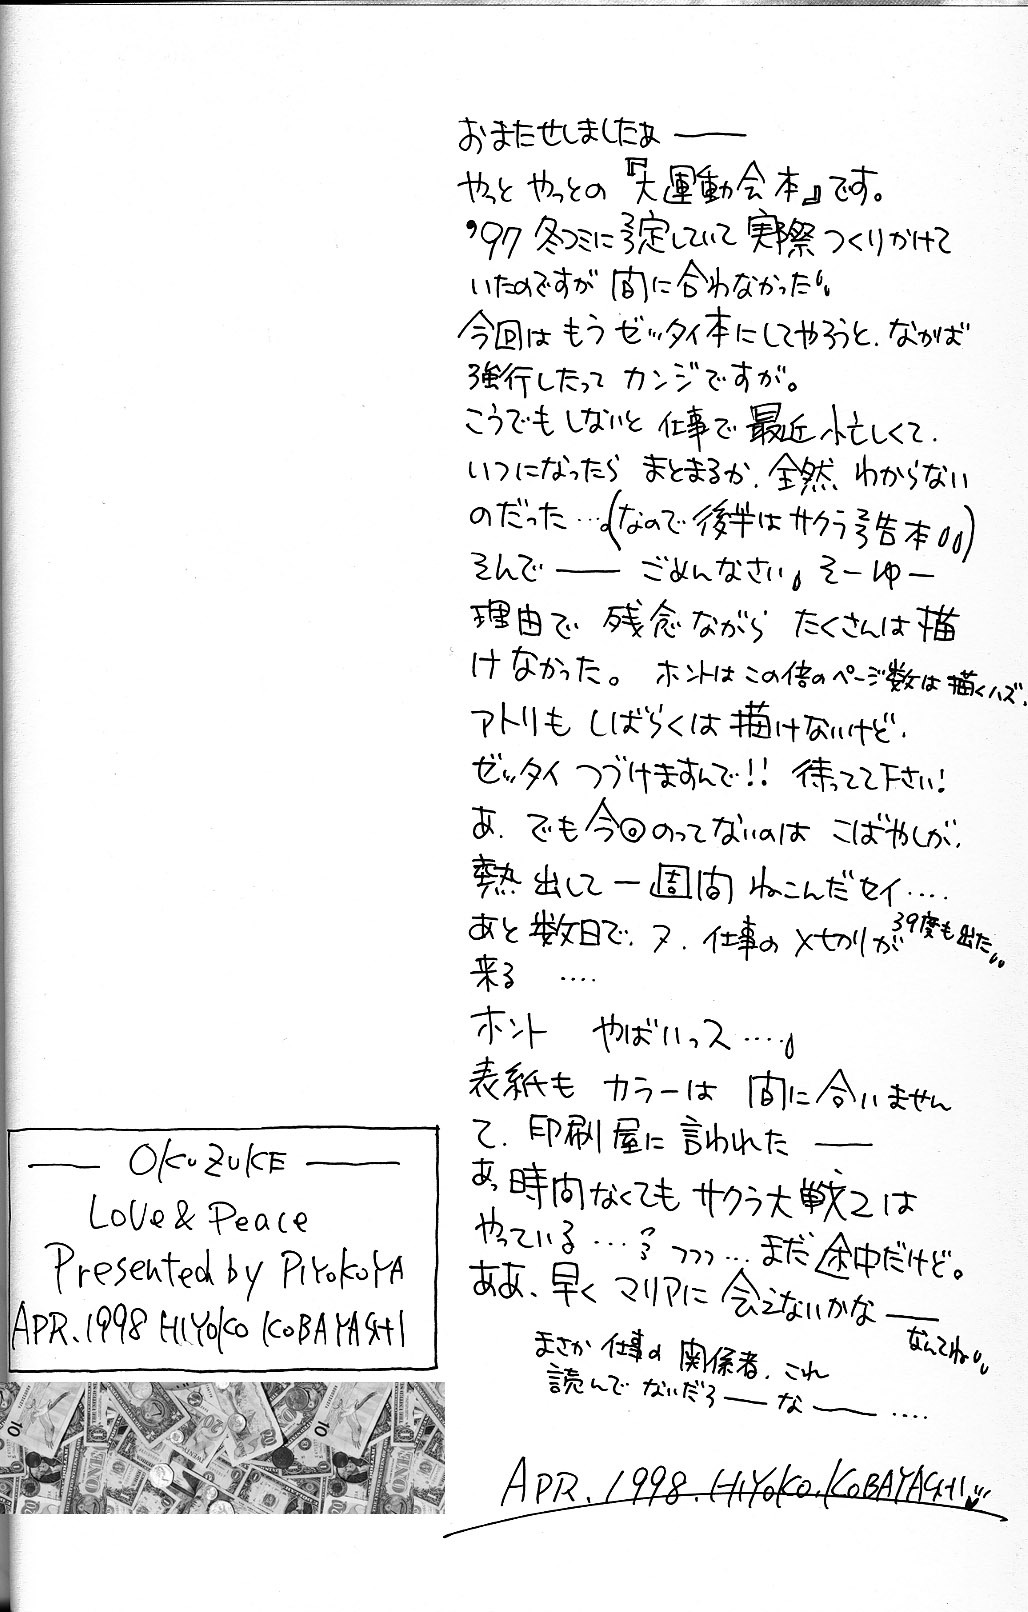 おまたせしましたぁ――
やっと やっとの『大運動会本』です。
'97 冬コミに予定していて 実際 つくりかけて
いたのですが 間に合わなかった
今回は もう ゼッタイ本にしてやろうと、なかば
強行したって カンジですが。
こうでも しないと 仕事で 最近 忙しくて、
いつになったら まとまるか、全然 わからない
のだった…。(なので 後半は サクラ予告本)
そんで―― ごめんなさい。 そーゆー
理由で 残念ながら たくさんは 描
けなかった。 ホントは この倍の ページ数は 描くハズ、
アトリも しばらくは 描けないけど、
ゼッタイ つづけますんで!! 待ってて下さい!
あ、でも今回のってないのは こばやしが、
熱出して 一週間 ねこんだセイ‥‥
39度も出た
あと 数日で、又、仕事の 〆切りが
来る ‥‥
ホント やばいっス‥‥。
表紙も カラーは 間に合いません
て、印刷屋に 言われた ――
あっ 時間なくても サクラ大戦2は
やっている …? つつつ… まだ 途中だけど。
ああ、早く マリアに 会えないかな――
なんてね
まさか 仕事の 関係者、これ
読んで ないだろ――な―― ‥‥
APR. 1998. HIYOKO. KOBAYASHI
― OKUZUKE ―
Love & Peace
Presented by PIYOKOYA
APR. 1998 HIYOKO KOBAYASHI